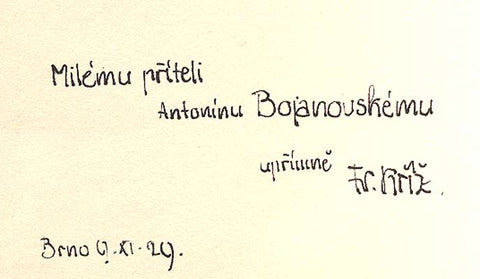 Milému příteli
Antonínu Bojanovskému
upřímně Fr. Kříž.
Brno 9.XI.29.